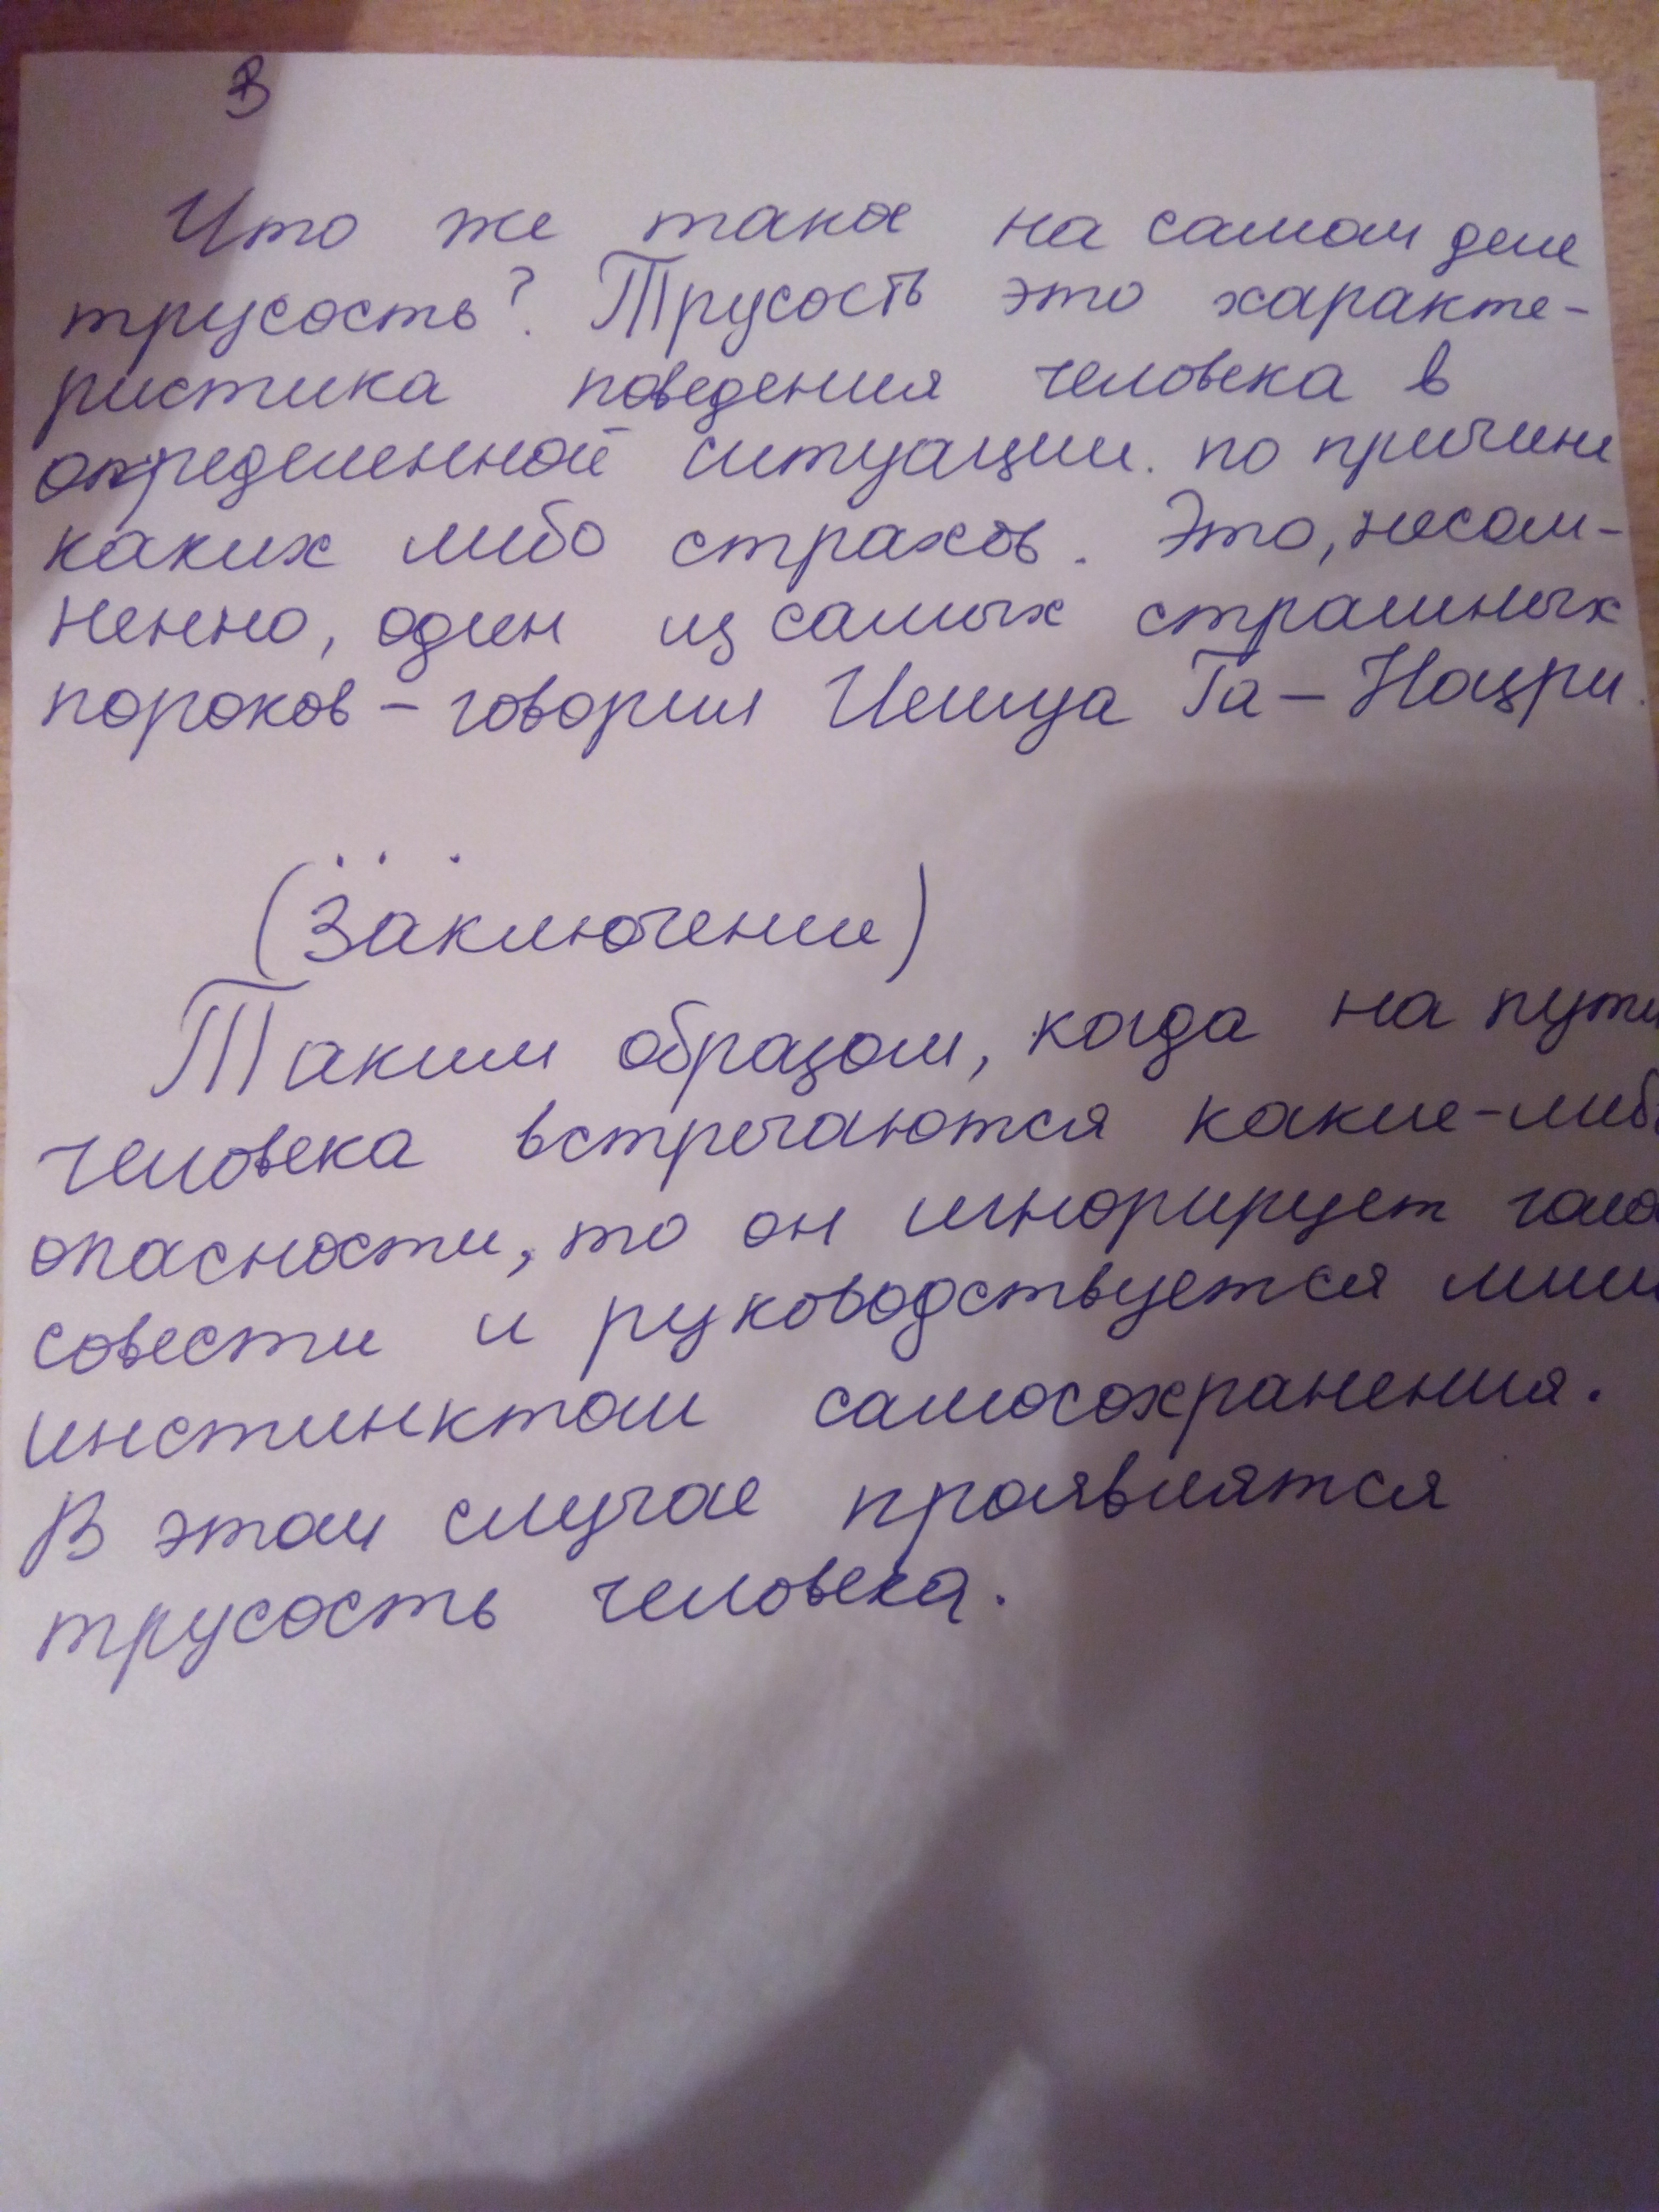 В
Что же така на самом деле
трусость? Трусость это характе-
ристика поведения человека в
определенной ситуации. по причине
каких либо страхов. Это, несом-
ненно, один из самых страшных
пороков - говорил Иешуа Га - Ноцри.
...
(Заключение)
Таким образом, когда на пути
человека встречаются какие-либ
опасности, то он игнорирует голо
совести и руководствуется лиш
инстинктом самосохранения.
В этом случае проявлятся
трусость человека.